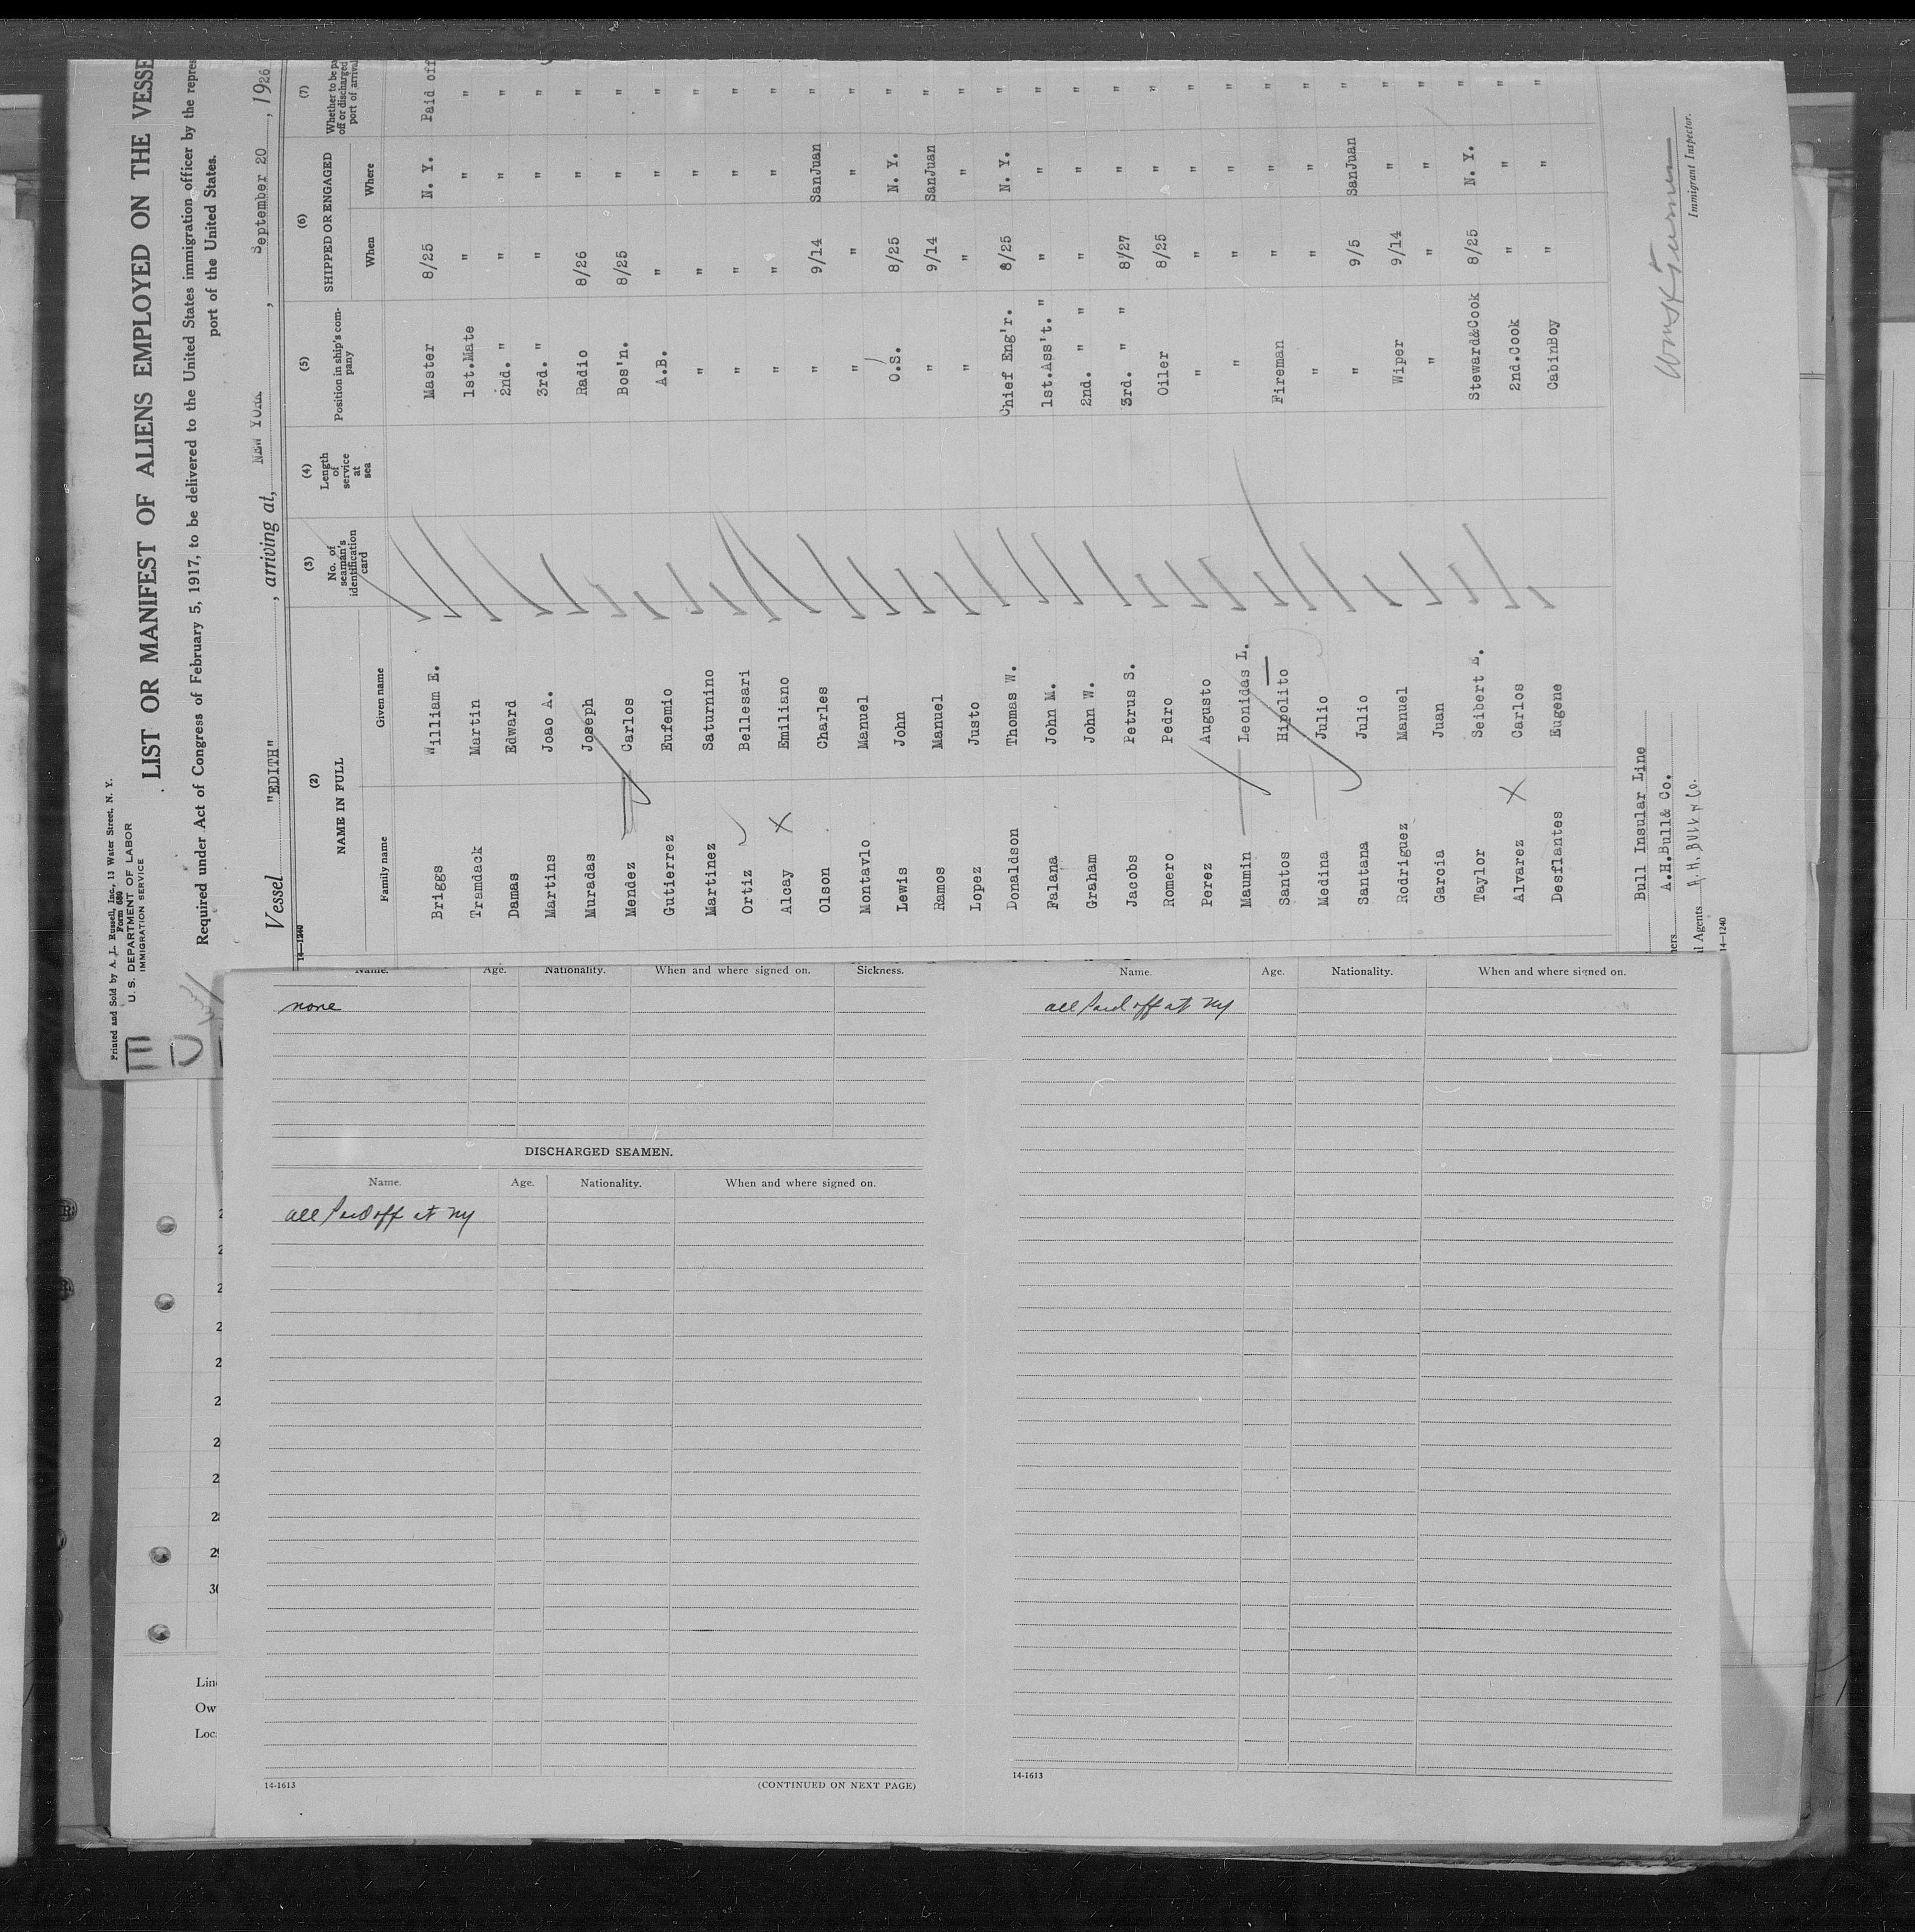 Printed and Sold by A. J. Russell, Inc., 13 Water Street, N. Y.
Form 680
U. S. DEPARTMENT OF LABOR
IMMIGRATION SERVICE
LIST OR MANIFEST OF ALIENS EMPLOYED ON THE VESSE
Required under Act of Congress of February 5, 1917, to be delivered to the United States immigration officer by the repres
port of the United States.
Vessel "EDITH", arriving at, NEW YORK, September 20, 1926
14—1240
(2) (3) (4) (5) (6) (7)
NAME IN FULL No. of seaman's identification card Length of service at sea Position in ship's com-pany SHIPPED OR ENGAGED Whether to be pa off or discharged port of arrival
Family name Given name When Where
Briggs William E. Master 8/25 N. Y. Paid off
Tramdack Martin 1st.Mate " " "
Damas Edward 2nd. " " " "
Martins Joao A. 3rd. " " " "
Muradas Joseph Radio 8/26 " "
Mendez Carlos Bos'n. 8/25 " "
Gutierrez Eufemio A.B. " " "
Martinez Saturnino " " " "
Ortiz Bellesari " " " "
Alcay Emiliano " " " "
Olson Charles " 9/14 SanJuan "
Montavlo Manuel " " " "
Lewis John O.S. 8/25 N. Y. "
Ramos Manuel " 9/14 SanJuan "
Lopez Justo " " " "
Donaldson Thomas W. Chief Eng'r. 8/25 N. Y. "
Falana John M. 1st.Ass't. " " " "
Graham John W. 2nd. " " " " "
Jacobs Petrus S. 3rd. " " 8/27 " "
Romero Pedro Oiler 8/25 " "
Perez Augusto " " " "
Maumin Leonidas L. " " " "
Santos Hipolito Fireman " " "
Medina Julio " " " "
Santana Julio " 9/5 SanJuan "
Rodriguez Manuel Wiper 9/14 " "
Garcia Juan " " " "
Taylor Seibert E. Steward&Cook 8/25 N. Y. "
Alvarez Carlos 2nd.Cook " " "
Desflantes Eugene CabinBoy " " "
Bull Insular Line
ners A.H.Bull& Co.
l Agents A.H. BULL & Co.
14—1240
Immigrant Inspector.
Name. Age. Nationality. When and where signed on. Sickness.
none
DISCHARGED SEAMEN.
Name. Age. Nationality. When and where signed on.
all Paid off at NY
14-1613
(CONTINUED ON NEXT PAGE)
Name. Age. Nationality. When and where signed on.
all Paid off at NY
14-1613
2
2
2
2
2
2
2
2
29
30
Lin
Ow
Loc